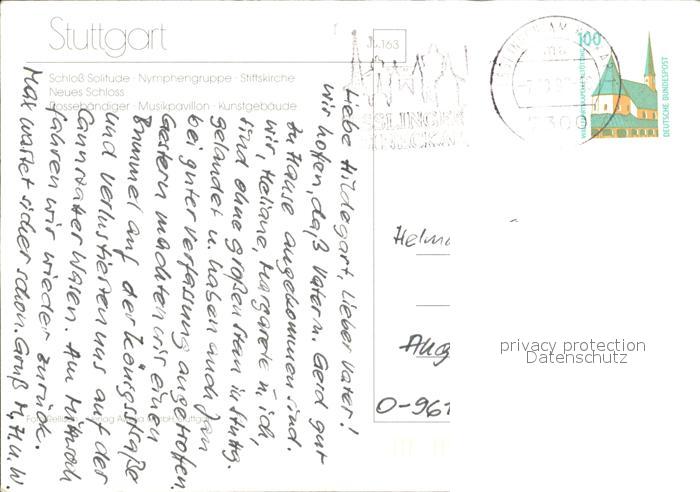 Stuttgart
Schloß Solitude · Nymphengruppe · Stiftskirche
Neues Schloss
Rossebändiger · Musikpavillon · Kunstgebäude
163
100
DEUTSCHE BUNDESPOST
ESSLINGEN
7300
Liebe Hildegart, Lieber Vater!
Wir hoffen, daß Vater u. Gerd gut
zu Hause angekommen sind.
Wir, Heliane, Margarete u. ich,
sind ohne großen Stau in Stuttg.
gelandet u. haben auch Jan
bei guter Verfassung angetroffen.
Gestern machten wir einen
Bummel auf der Königsstraße
und verlustierten uns auf der
Cannstatter Wasen. Am Mittwoch
fahren wir wieder zurück.
Max wartet sicher schon. Gruß M, H. u. W.
Helm
Aug
O-961
privacy protection
Datenschutz